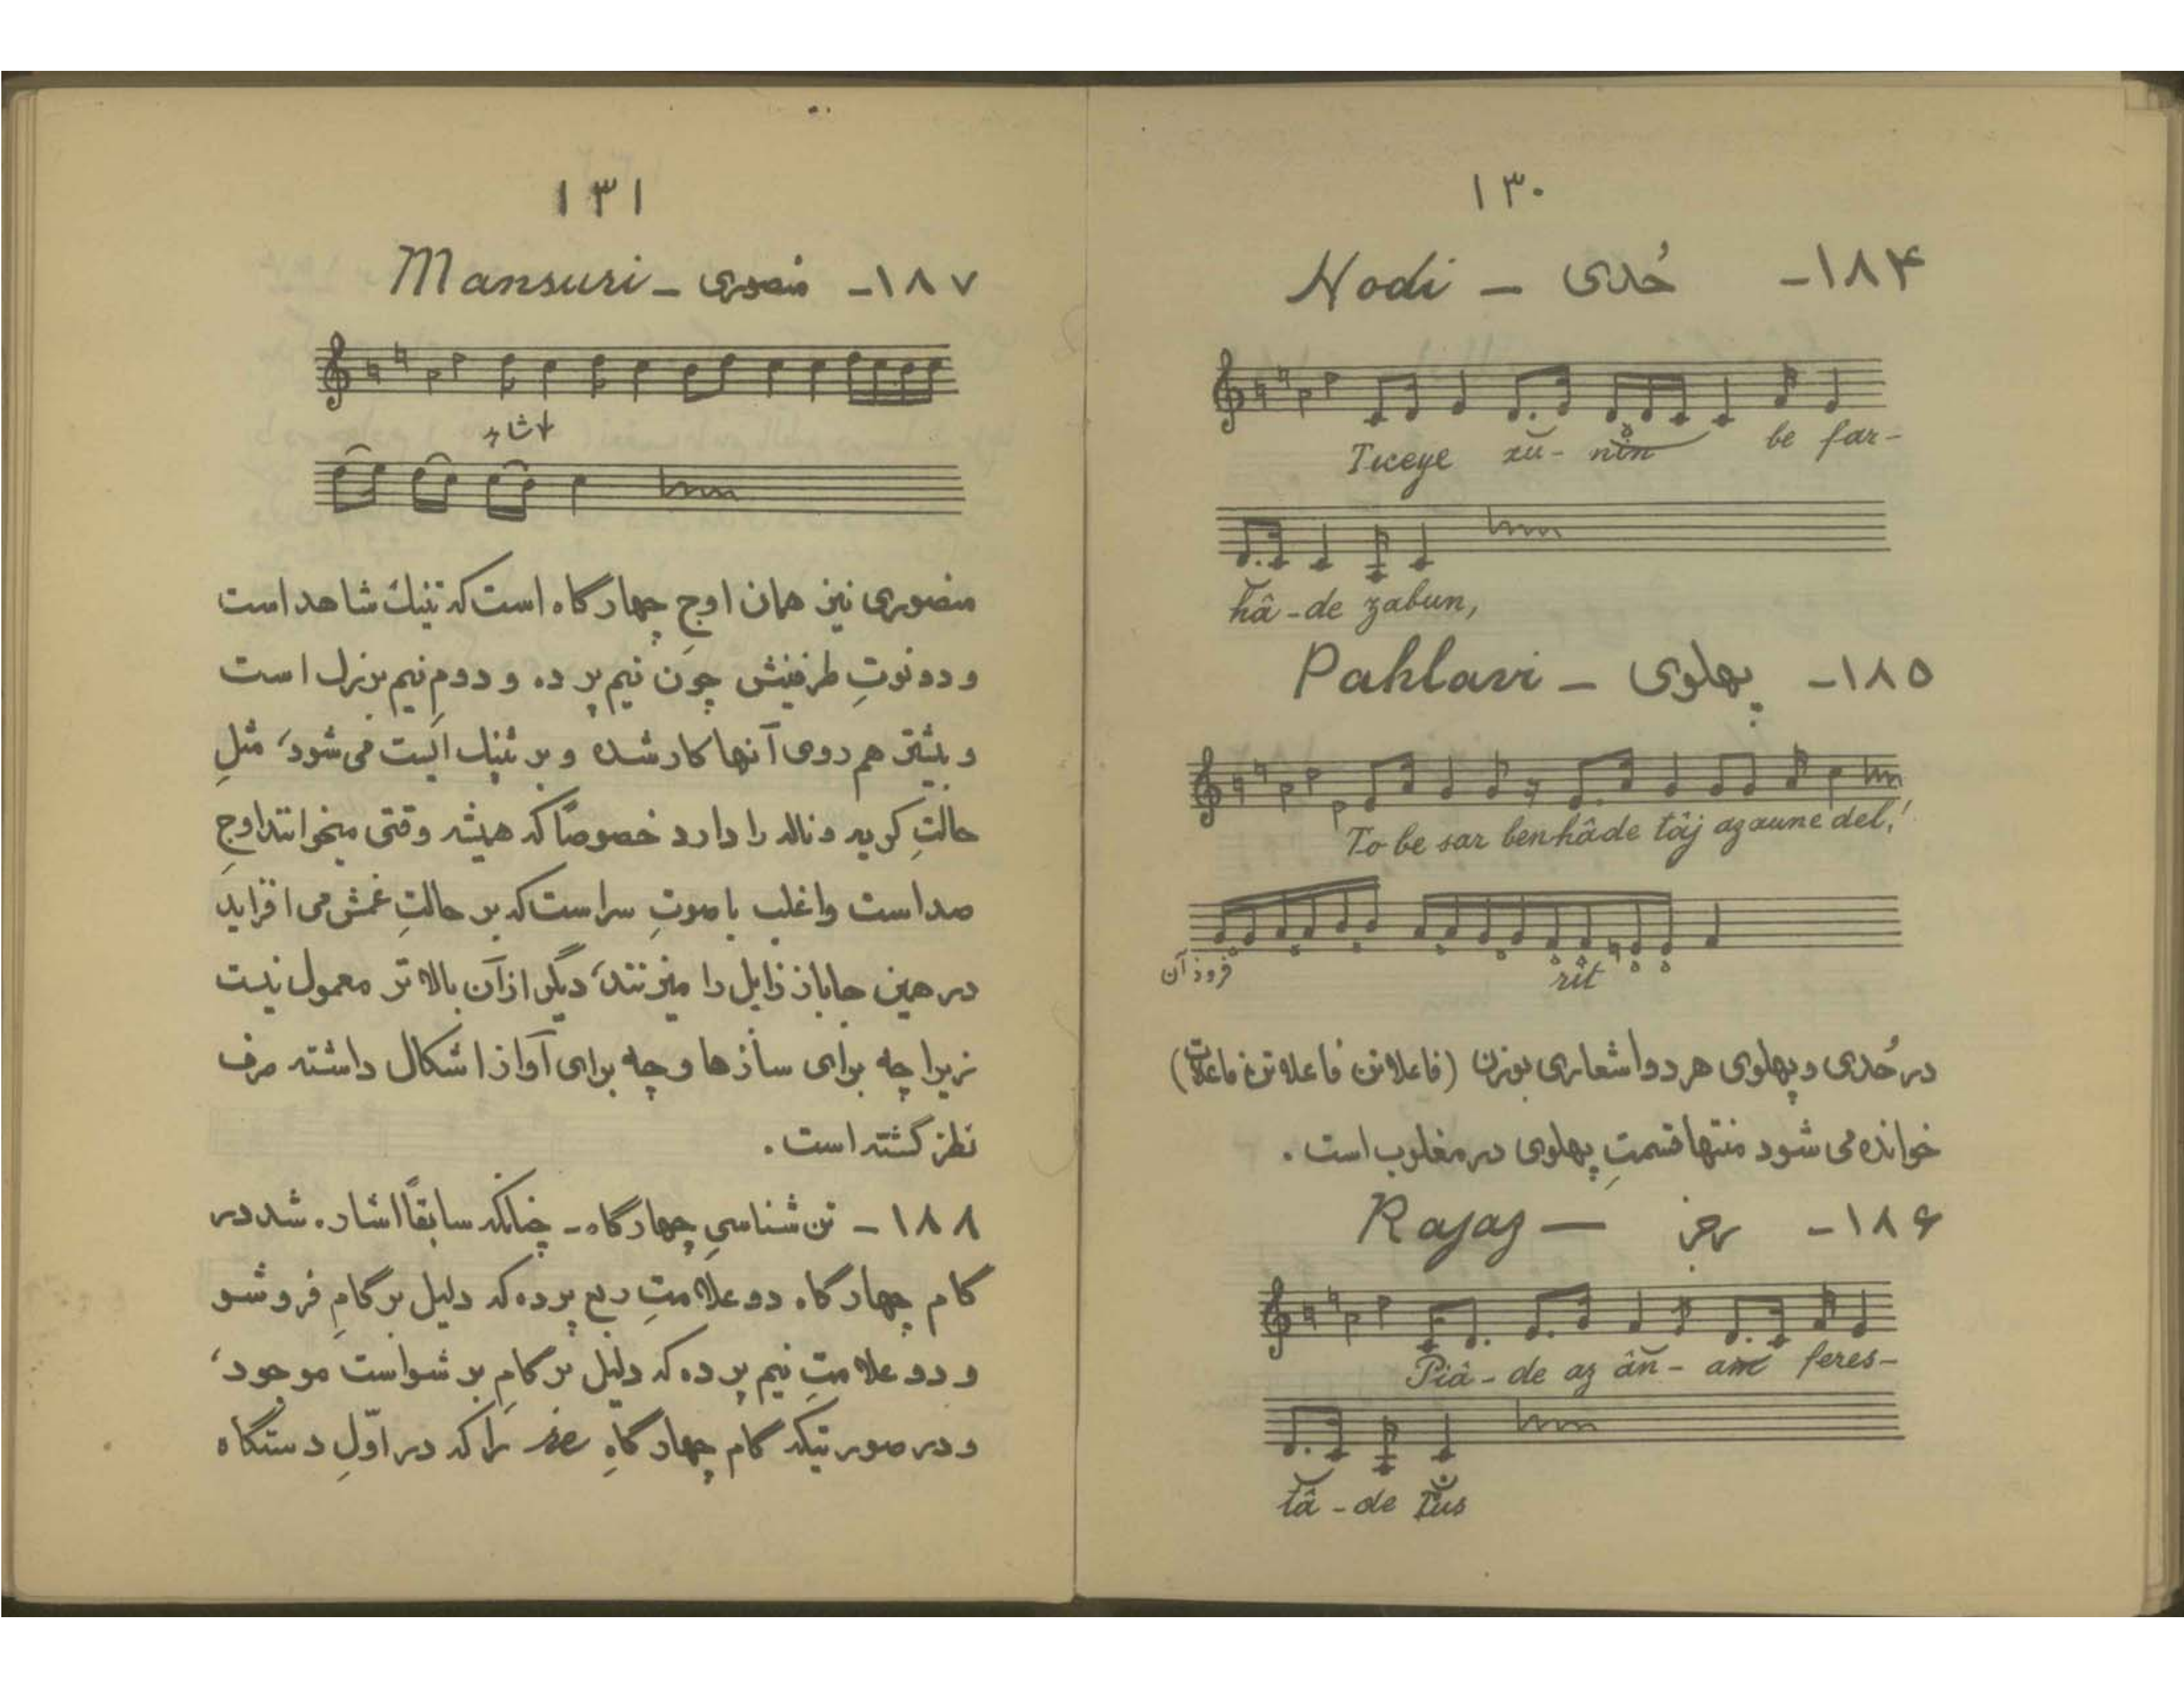 ۱۳۰
۱۸۴- حُدی – Hodi
Ticeye xu- nin be far-
hâ-de zabun,
۱۸۵- پهلوی – Pahlavi
To be sar benhâde tâj azaune del!
فرود آن
rit
در حُدی و پهلوی هر دو اشعاری بوزن (فاعلاتن فاعلاتن فاعلات)
خوانده می شود منتها قسمتِ پهلوی در مغلوب است .
۱۸۶- رجز — Rajaz
Piâ-de az ân-am feres-
tâ-de Tus
۱۳۱
۱۸۷- منصوری – Mansuri
منصوری نیز همان اوجِ چهارگاه است که تنیك شاهد است
و دو نوتِ طرفینش چون نیم پرده و دوم نیم بزرل است
و بیشتر هم روی آنها کار شده و بر تنیك ایست می شود، مثلِ
حالتِ گریه و ناله را دارد خصوصاً که همیشه وقتی میخوانند اوجِ
صداست و اغلب با صوتِ سراست که بر حالتِ غمش می افزاید
در همین جا باز زابل را میزنند، دیگر از آن بالا تر معمول نیست
زیرا چه برای سازها و چه برای آواز اشکال داشته صرف
نظر گشته است .
۱۸۸ – تن شناسیِ چهارگاه – چنانکه سابقاً اشاره شد در
گام چهارگاه دو علامتِ ربع پرده که دلیل بر گامِ فروشو
و دو علامتِ نیم پرده که دلیل بر گامِ بر شواست موجود،
و در صورتیکه گام چهارگاهِ را که در اوّلِ دستگاه